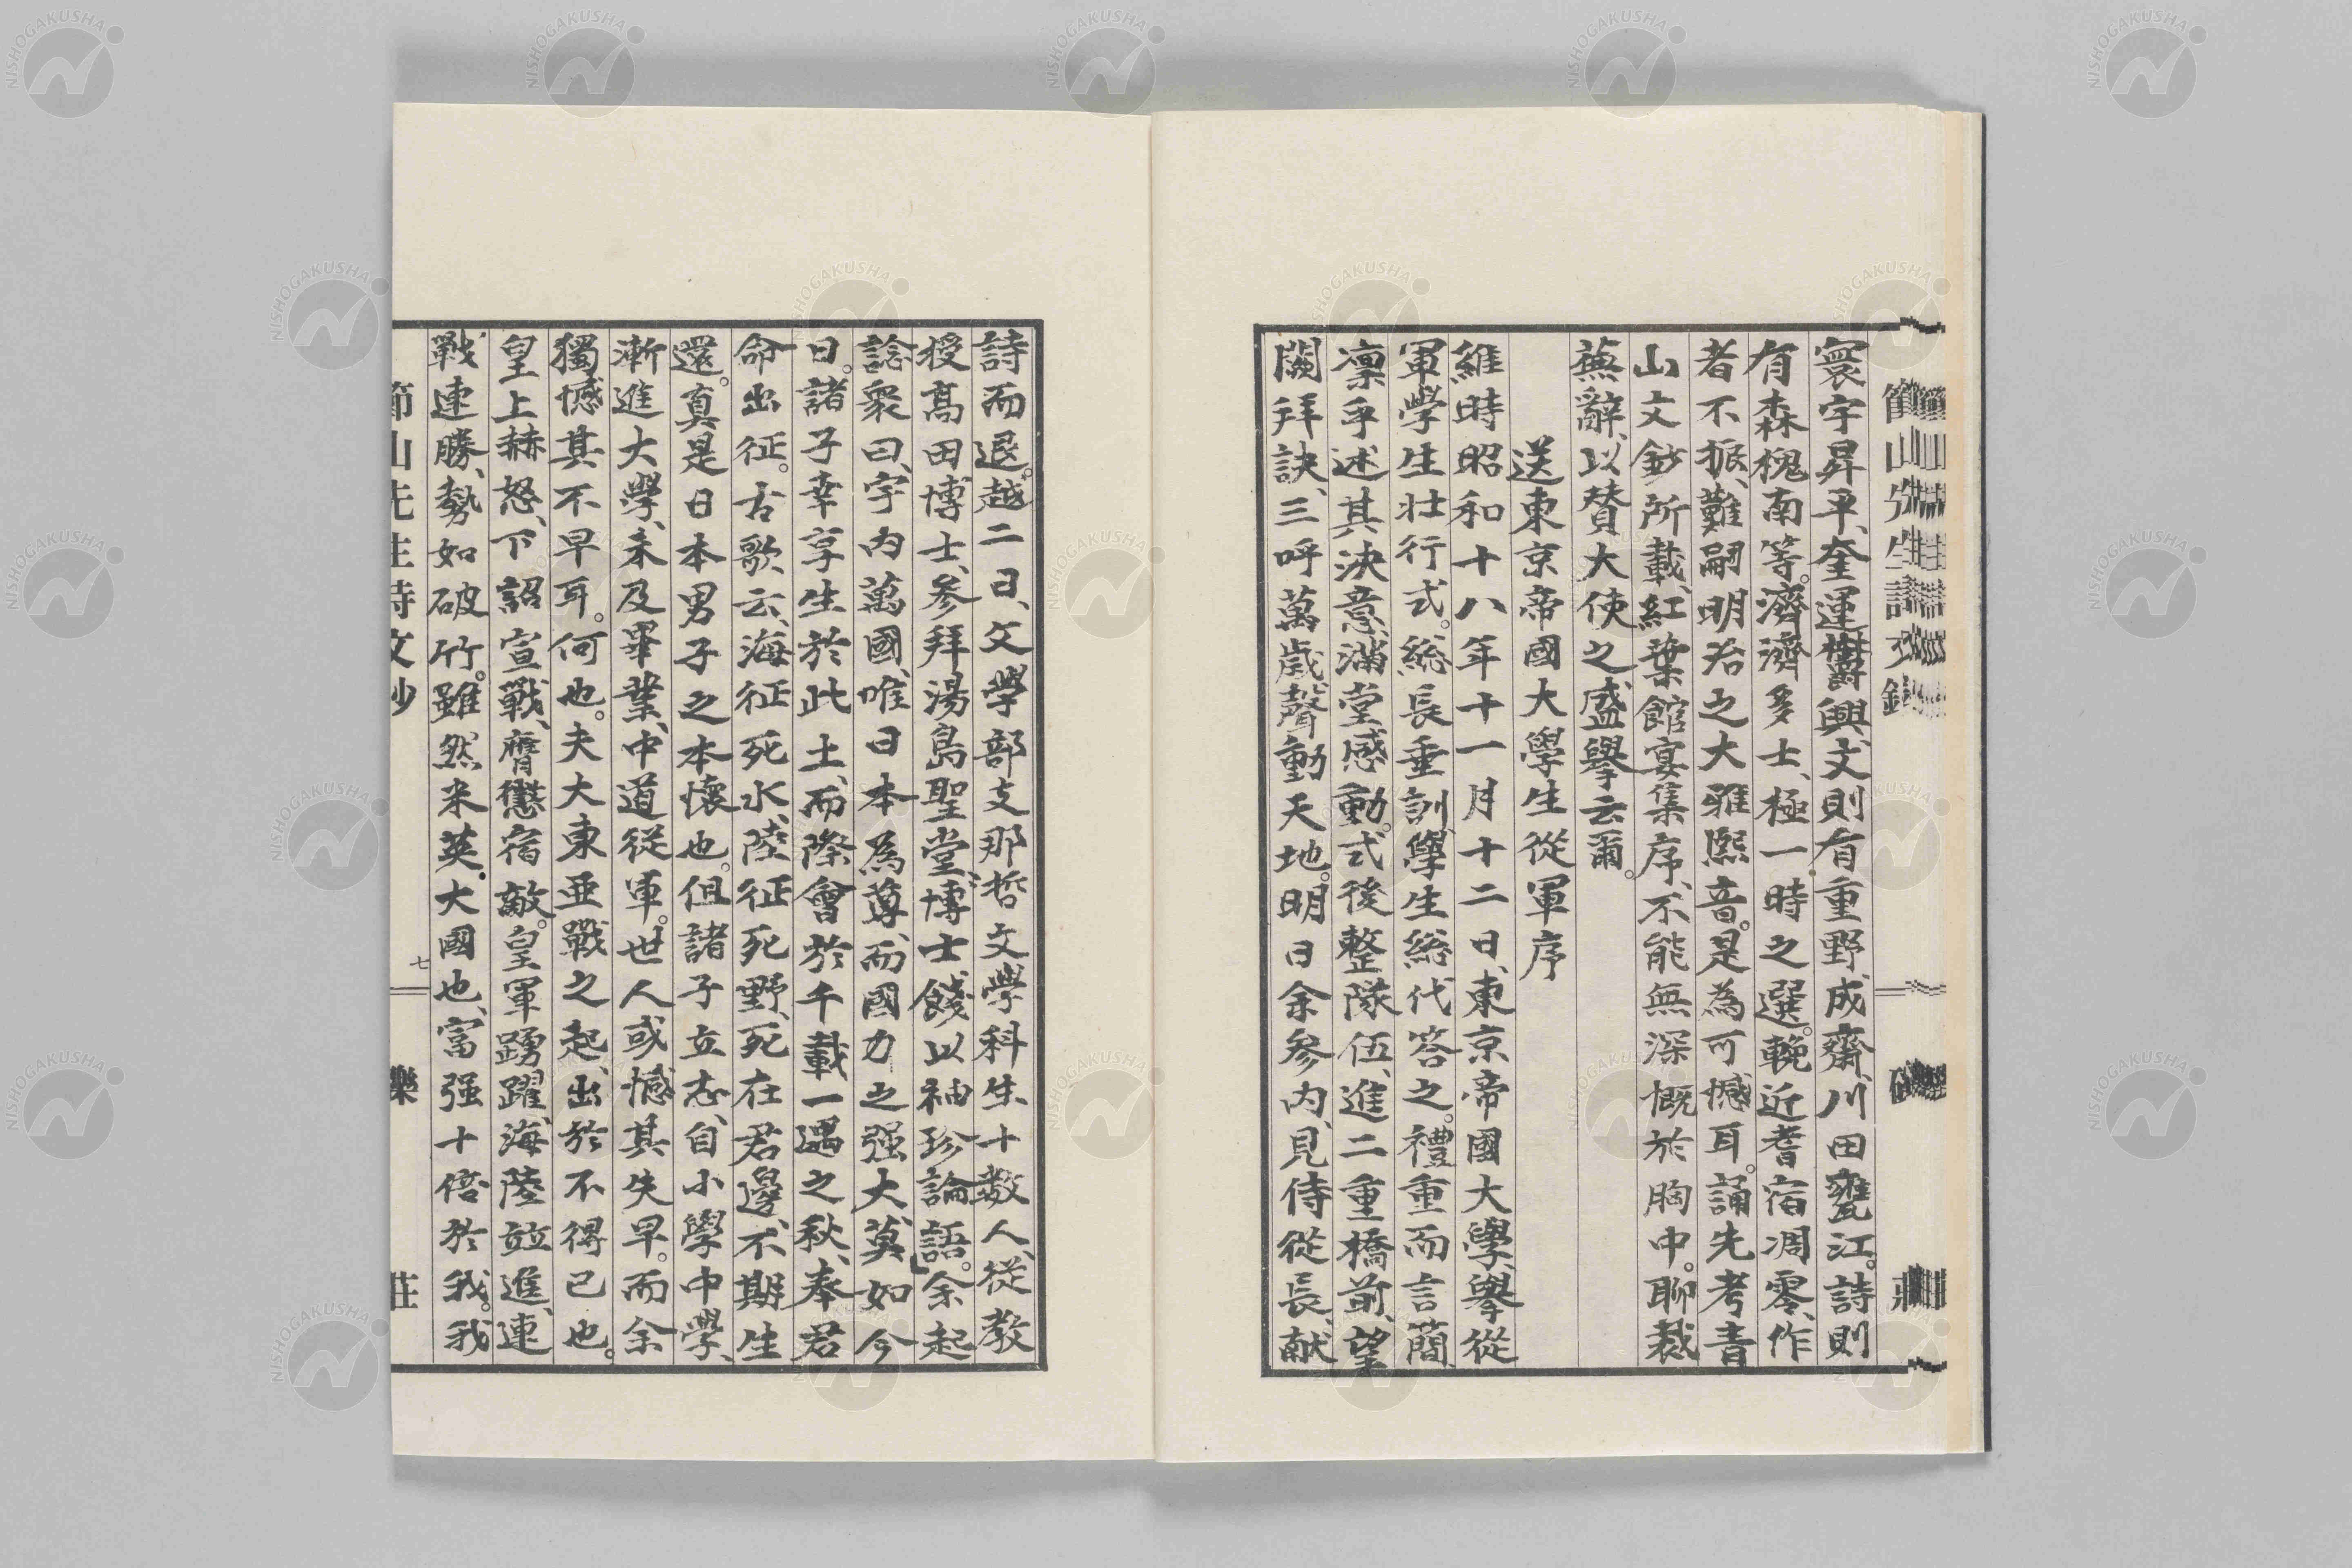 寰宇昇平、奎運欝興、文則有重野成齋、川田甕江。詩則
有森槐南等。濟濟多士、極一時之選。輓近耆宿凋零、作
者不振、難嗣明治之大雅熈音。是為可憾耳。誦先考青
山文鈔所載、紅葉館宴集序、不能無深慨於胸中。聊裁
蕪辭、以賛大使之盛擧云爾。
送東京帝國大學生從軍序
維時昭和十八年十一月十二日、東京帝國大學、擧從
軍學生壮行式。総長垂訓、學生総代答之。禮重而言簡
凜乎述其決意、滿堂感動。式後整隊伍、進二重橋前、望
闕拜訣、三呼萬歳、聲動天地。明日余参内、見侍從長、献
詩而退。越二日、文學部支那哲文學科生十数人、從教
授髙田博士、参拜湯島聖堂、博士餞以袖珍論語。余起
諗衆曰、宇内萬國、唯日本為尊、而國力之强大、莫如今
日。諸子幸享生於此土、而際會於千載一遇之秋、奉君
命出征。古歌云、海征死水、陸征死野、死在君邊、不期生
還。真是日本男子之本懐也。但諸子立志、自小學中學、
漸進大學、未及畢業、中道從軍。世人或憾其失早。而余
獨憾其不早耳。何也。夫大東亜戰之起、出於不得已也。
皇上赫怒、下詔宣戰、膺懲宿敵。皇軍踴躍、海陸竝進、連
戰連勝、勢如破竹。雖然米英大國也、富强十倍於我。我
節山先生詩文鈔
七
樂
莊